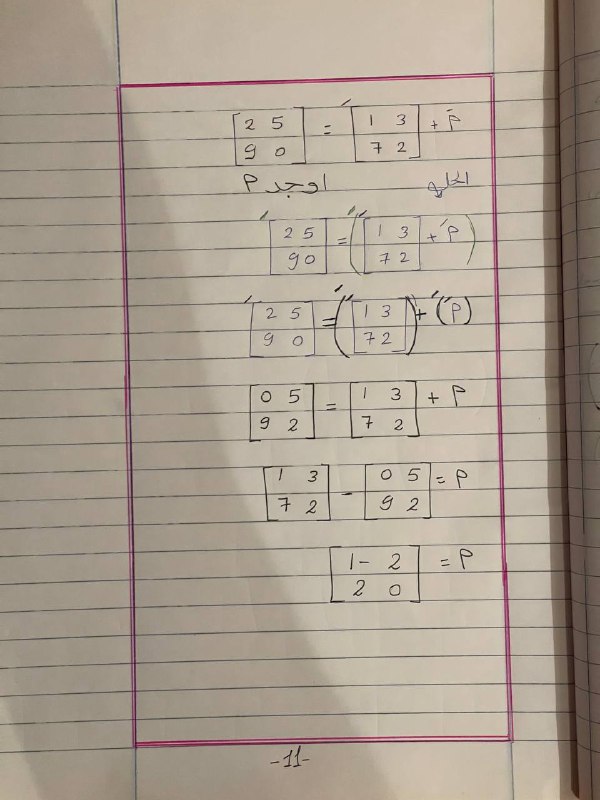 [2 5 / 9 0] = [1 3 / 7 2]′ + م′
الحل اوجد م
[2 5 / 9 0]′ = ([1 3 / 7 2]′ + م′)′
[2 5 / 9 0]′ = ([1 3 / 7 2]′)′ + (م′)′
[0 5 / 9 2] = [1 3 / 7 2] + م
[1 3 / 7 2] - [0 5 / 9 2] = م
[1- 2 / 2 0] = م
-11-